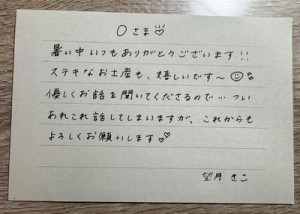 Oさま
暑い中いつもありがとうございます!!
ステキなお土産も、嬉しいです〜
優しくお話を聞いてくださるので…つい
あれこれ話してしまいますが、これからも
よろしくお願いします♡♡
望月 さこ